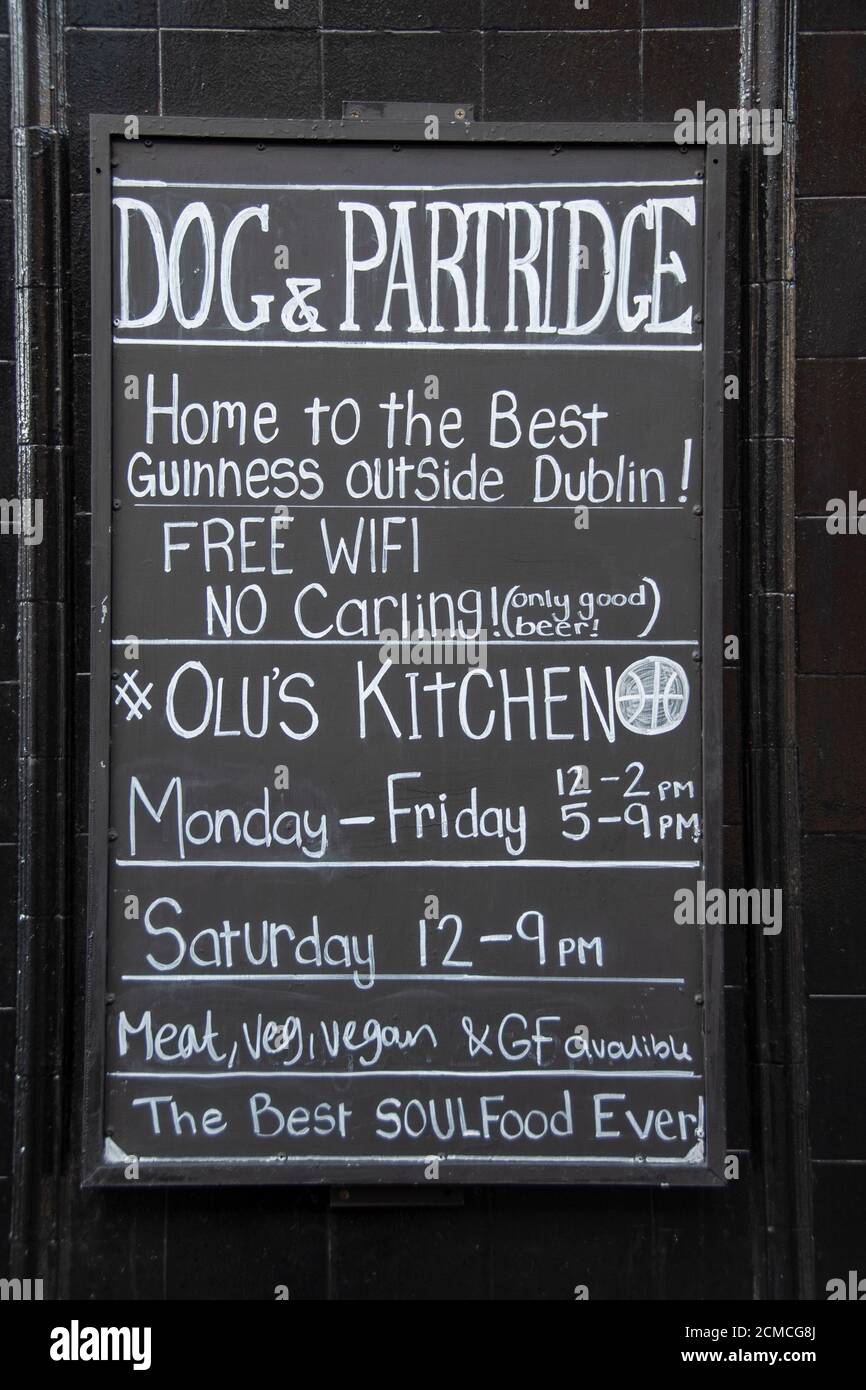 DOG & PARTRIDGE
Home to the Best
Guinness outside Dublin!
FREE WIFI
NO Carling! (only good
beer!)
#OLU'S KITCHEN
Monday - Friday 12-2 PM
5-9 PM
Saturday 12-9 PM
Meat, veg, vegan & GF avalible
The Best SOULFood Ever!
alamy
Image ID: 2CMCG8J
www.alamy.com